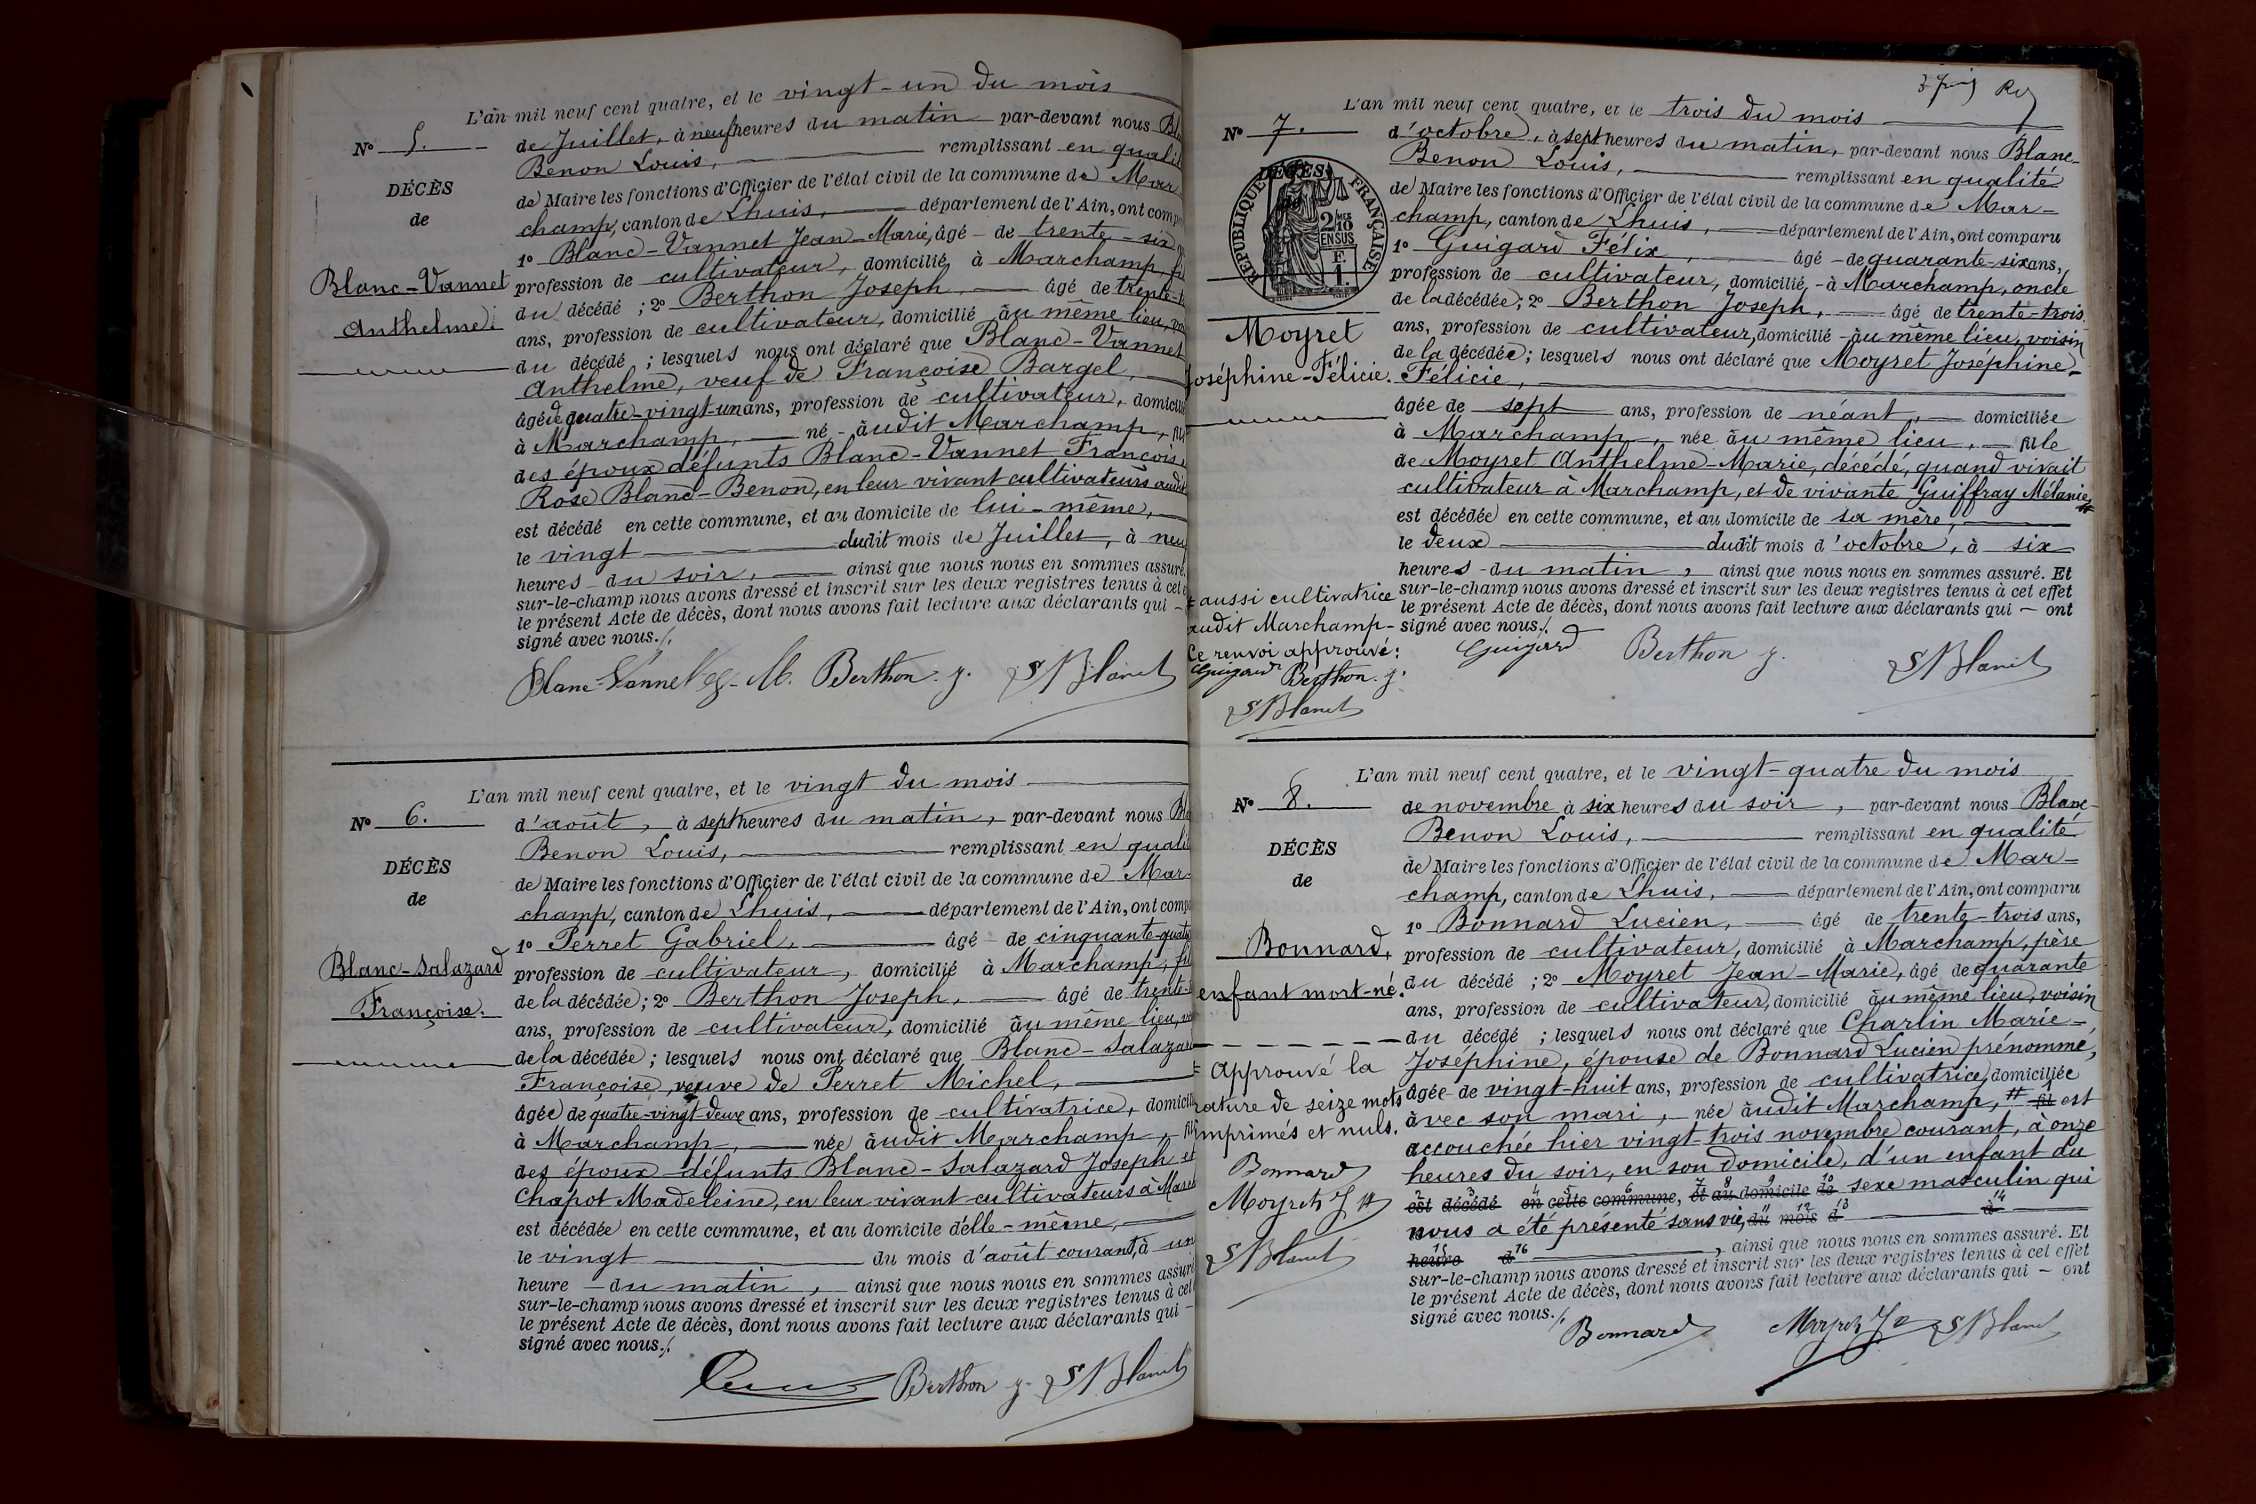 L'an mil neuf cent quatre, et le vingt-un du mois
N° 5.
de Juillet, à neuf heures du matin par-devant nous
Benon Louis, remplissant en qualité
DÉCÈS
de Maire les fonctions d'Officier de l'état civil de la commune de Mar
de
champ, canton de Lhuis, département de l'Ain, ont comp
1° Blanc-Vannet Jean-Marie, âgé de trente-six
Blanc-Vannet
profession de cultivateur, domicilié à Marchamp,
du décédé ; 2° Berthon Joseph, âgé de trente-
Anthelme.
ans, profession de cultivateur, domicilié au même lieu,
du décédé ; lesquels nous ont déclaré que Blanc-Vannet
Anthelme, veuf de Françoise Bargel,
âgé de quatre-vingt-un ans, profession de cultivateur, domicilié
à Marchamp, né audit Marchamp, fils
des époux défunts Blanc-Vannet François
Rose Blanc-Benon, en leur vivant cultivateurs audit
est décédé en cette commune, et au domicile de lui-même,
le vingt dudit mois de Juillet, à neuf
heures du soir, ainsi que nous nous en sommes assuré.
sur-le-champ nous avons dressé et inscrit sur les deux registres tenus à cet
le présent Acte de décès, dont nous avons fait lecture aux déclarants qui
signé avec nous./.
Blanc-Vannet J.-M. Berthon. j. S Blanc
L'an mil neuf cent quatre, et le vingt du mois
N° 6.
d'août, à sept heures du matin, par-devant nous
Benon Louis, remplissant en qualité
DÉCÈS
de Maire les fonctions d'Officier de l'état civil de la commune de Mar-
de
champ, canton de Lhuis, département de l'Ain, ont comp
1° Perret Gabriel, âgé de cinquante-quatre
Blanc-Salazard
profession de cultivateur, domicilié à Marchamp, fils
Françoise.
de la décédée ; 2° Berthon Joseph, âgé de trente-
ans, profession de cultivateur, domicilié au même lieu,
de la décédée ; lesquels nous ont déclaré que Blanc-Salazard
Françoise, veuve de Perret Michel,
âgée de quatre-vingt-deux ans, profession de cultivatrice, domiciliée
à Marchamp, née audit Marchamp, fille
des époux défunts Blanc-Salazard Joseph et
Chapot Madeleine, en leur vivant cultivateurs à March
est décédée en cette commune, et au domicile d'elle-même,
le vingt du mois d'août courant, à une
heure du matin, ainsi que nous nous en sommes assuré
sur-le-champ nous avons dressé et inscrit sur les deux registres tenus à cet
le présent Acte de décès, dont nous avons fait lecture aux déclarants qui
signé avec nous./.
Berthon j. S Blanc
L'an mil neuf cent quatre, et le trois du mois
N° 7.
d'octobre, à sept heures du matin, par-devant nous Blanc-
Benon Louis, remplissant en qualité
DÉCÈS
RÉPUBLIQUE FRANÇAISE
2/10 EN SUS
F. 1.
de Maire les fonctions d'Officier de l'état civil de la commune de Mar-
champ, canton de Lhuis, département de l'Ain, ont comparu
1° Guigard Félix, âgé de quarante-six ans,
profession de cultivateur, domicilié à Marchamp, oncle
de la décédée ; 2° Berthon Joseph, âgé de trente-trois
Moyret
ans, profession de cultivateur, domicilié au même lieu, voisin
de la décédée ; lesquels nous ont déclaré que Moyret Joséphine-
Joséphine-Félicie.
Félicie,
âgée de sept ans, profession de néant, domiciliée
à Marchamp, née au même lieu, fille
de Moyret Anthelme-Marie, décédé, quand vivait
cultivateur à Marchamp, et de vivante Guiffray Mélanie #
est décédée en cette commune, et au domicile de sa mère,
le deux dudit mois d'octobre, à six
heures du matin, ainsi que nous nous en sommes assuré. Et
sur-le-champ nous avons dressé et inscrit sur les deux registres tenus à cet effet
le présent Acte de décès, dont nous avons fait lecture aux déclarants qui ont
signé avec nous./.
# aussi cultivatrice
audit Marchamp-
Ce renvoi approuvé :
Guigard Berthon. j.
S Blanc
Guigard Berthon j. S Blanc
L'an mil neuf cent quatre, et le vingt-quatre du mois
N° 8.
de novembre à six heures du soir, par-devant nous Blanc-
Benon Louis, remplissant en qualité
DÉCÈS
de Maire les fonctions d'Officier de l'état civil de la commune de Mar-
de
champ, canton de Lhuis, département de l'Ain, ont comparu
1° Bonnard Lucien, âgé de trente-trois ans,
Bonnard,
profession de cultivateur, domicilié à Marchamp, père
enfant mort-né.
du décédé ; 2° Moyret Jean-Marie, âgé de quarante
ans, profession de cultivateur, domicilié au même lieu, voisin
du décédé ; lesquels nous ont déclaré que Charlin Marie-
Joséphine, épouse de Bonnard Lucien prénommé,
âgée de vingt-huit ans, profession de cultivatrice, domiciliée
avec son mari, née audit Marchamp, # fil est
accouchée hier vingt-trois novembre courant, à onze
heures du soir, en son domicile, d'un enfant du
est décédé en cette commune, et au domicile de sexe masculin qui
nous a été présenté sans vie, du mois d à
heure d , ainsi que nous nous en sommes assuré. Et
sur-le-champ nous avons dressé et inscrit sur les deux registres tenus à cet effet
le présent Acte de décès, dont nous avons fait lecture aux déclarants qui ont
signé avec nous./.
# Approuvé la
rature de seize mots
imprimés et nuls.
Bonnard
Moyret J M
S Blanc
Bonnard Moyret J M S Blanc